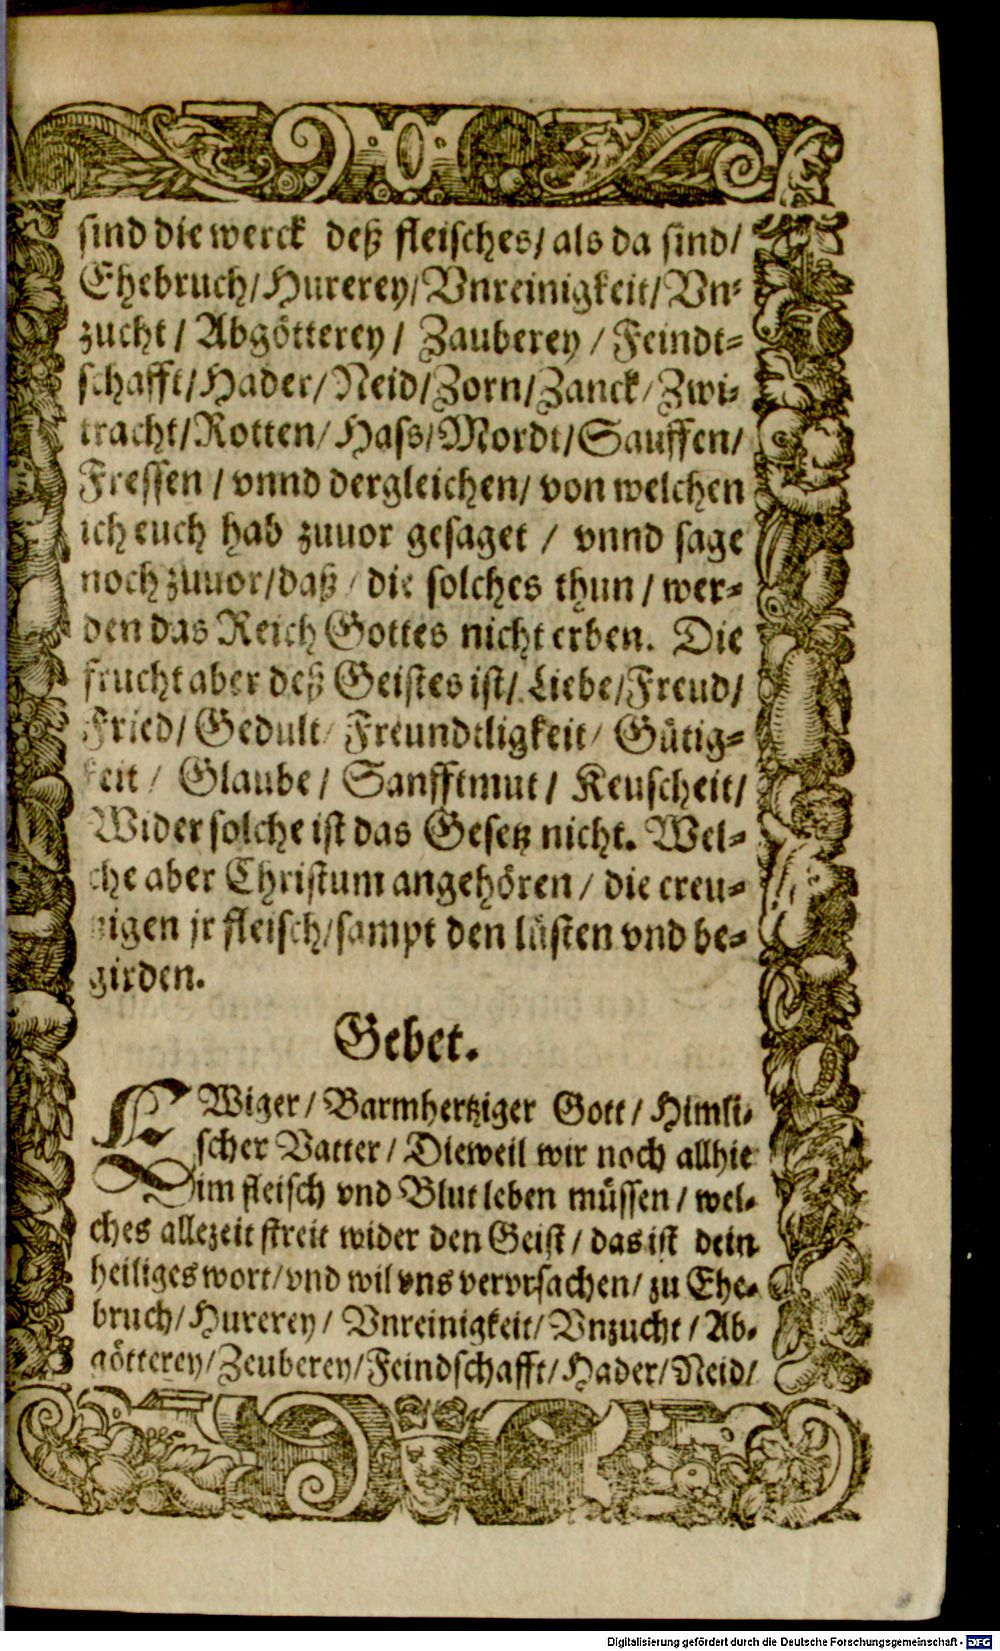 sind die werck deß fleisches/ als da sind/
Ehebruch/ Hurerey/ Vnreinigkeit/ Vn-
zucht/ Abgötterey/ Zauberey/ Feindt-
schafft/ Hader/ Neid/ Zorn/ Zanck/ Zwi-
tracht/ Rotten/ Hass/ Mordt/ Sauffen/
Fressen/ vnnd dergleichen/ von welchen
ich euch hab zuuor gesaget/ vnnd sage
noch zuuor/ daß/ die solches thun/ wer-
den das Reich Gottes nicht erben. Die
frucht aber deß Geistes ist/ Liebe/ Freud/
Fried/ Gedult/ Freundtligkeit/ Gütig-
keit/ Glaube/ Sanfftmut/ Keuscheit/
Wider solche ist das Gesetz nicht. Wel-
che aber Christum angehören/ die creu-
tzigen jr fleisch/ sampt den lüsten vnd be-
girden.
Gebet.
EWiger/ Barmhertziger Gott/ Himli-
scher Vatter/ Dieweil wir noch allhie
im fleisch vnd Blut leben müssen/ wel-
ches allezeit streit wider den Geist/ das ist dein
heiliges wort/ vnd wil vns vervrsachen/ zu Ehe-
bruch/ Hurerey/ Vnreinigkeit/ Vnzucht/ Ab-
götterey/ Zeuberey/ Feindschafft/ Hader/ Neid/
Digitalisierung gefördert durch die Deutsche Forschungsgemeinschaft - DFG